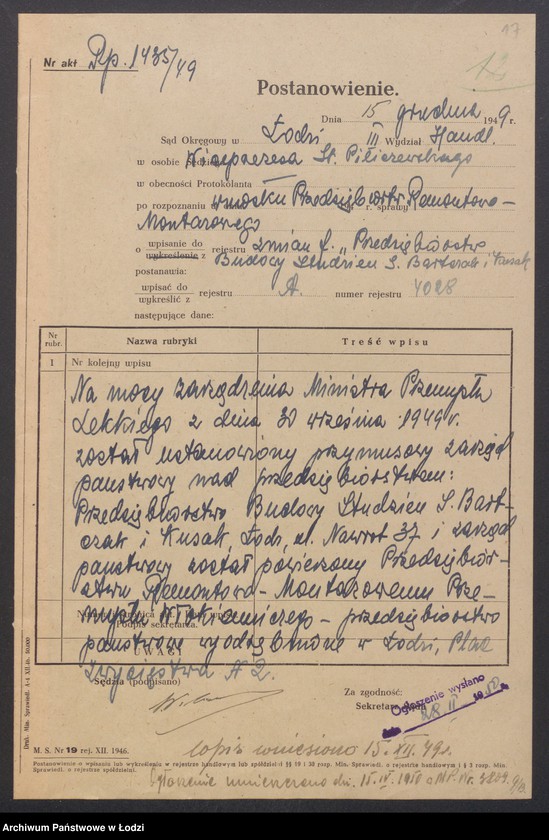 17
12
Nr akt Rp. 1435/49
Postanowienie.
Dnia 15 grudnia 1949 r.
Sąd Okręgowy w Łodzi III Wydział Handl.
w osobie Sędziego Wiceprezesa St. Piliszewskiego
w obecności Protokolanta
po rozpoznaniu wniosku Przedsiębiorstw. Remontowo- r. sprawy
Montażowego
o wpisanie do rejestru zmian f. „Przedsiębiorstwo
wykreślenie z Budowy Studzien S. Bartczak i Kusak
postanawia:
wpisać do rejestru A. numer rejestru 4028
wykreślić z
następujące dane:
Nr rubr. Nazwa rubryki Treść wpisu
1 Nr kolejny wpisu
Na mocy zarządzenia Ministra Przemysłu
Lekkiego z dnia 30 września 1949 r.
został ustanowiony przymusowy zarząd
państwowy nad przedsiębiorstwem:
Przedsiębiorstwo Budowy Studzien S. Bart-
czak i Kusak, Łódź, ul. Nawrot 37 i zarząd
państwowy został powierzony Przedsiębior-
stwu Remontowo-Montażowemu Prze-
mysłu Włókienniczego - przedsiębiorstwo
Podpis sekretarza.
państwowe wyodrębnione w Łodzi, Plac
UWAGI
Zwycięstwa N 2.
Sędzia (podpisano)
Za zgodność:
Sekretarz
Ogłoszenie wysłano
dnia 28 II 1950
Druk. Min. Sprawiedl. A-4 XII.46. 80.000
M. S. Nr 19 rej. XII. 1946.
Wpis wniesiono 15. XII. 49 r.
Postanowienie o wpisaniu lub wykreśleniu w rejestrze handlowym lub spółdziel. §§ 19 i 30 rozp. Min. Sprawiedl. o rejestrze handlowym i § 3 rozp. Min.
Sprawiedl. o rejestrze spółdzielni.
Ogłoszenie umieszczono dn. 15. IV. 1950 w M.P. Nr.
Archiwum Państwowe w Łodzi